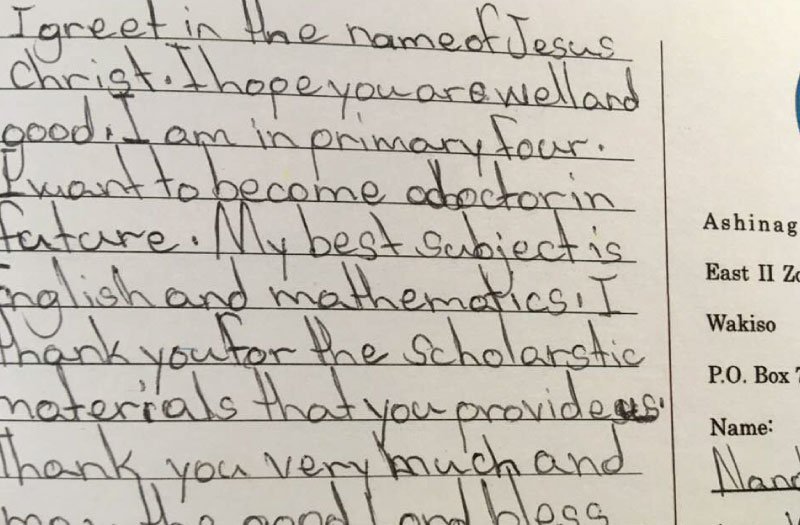 I greet in the name of Jesus
Christ. I hope you are well and
good. I am in primary four.
I want to become a doctor in
future. My best subject is
English and mathematics. I
thank you for the scholarstic
materials that you provide us.
thank you very much and
may the good Lord bless
Ashinag
East II Zo
Wakiso
P.O. Box 7
Name:
Nand